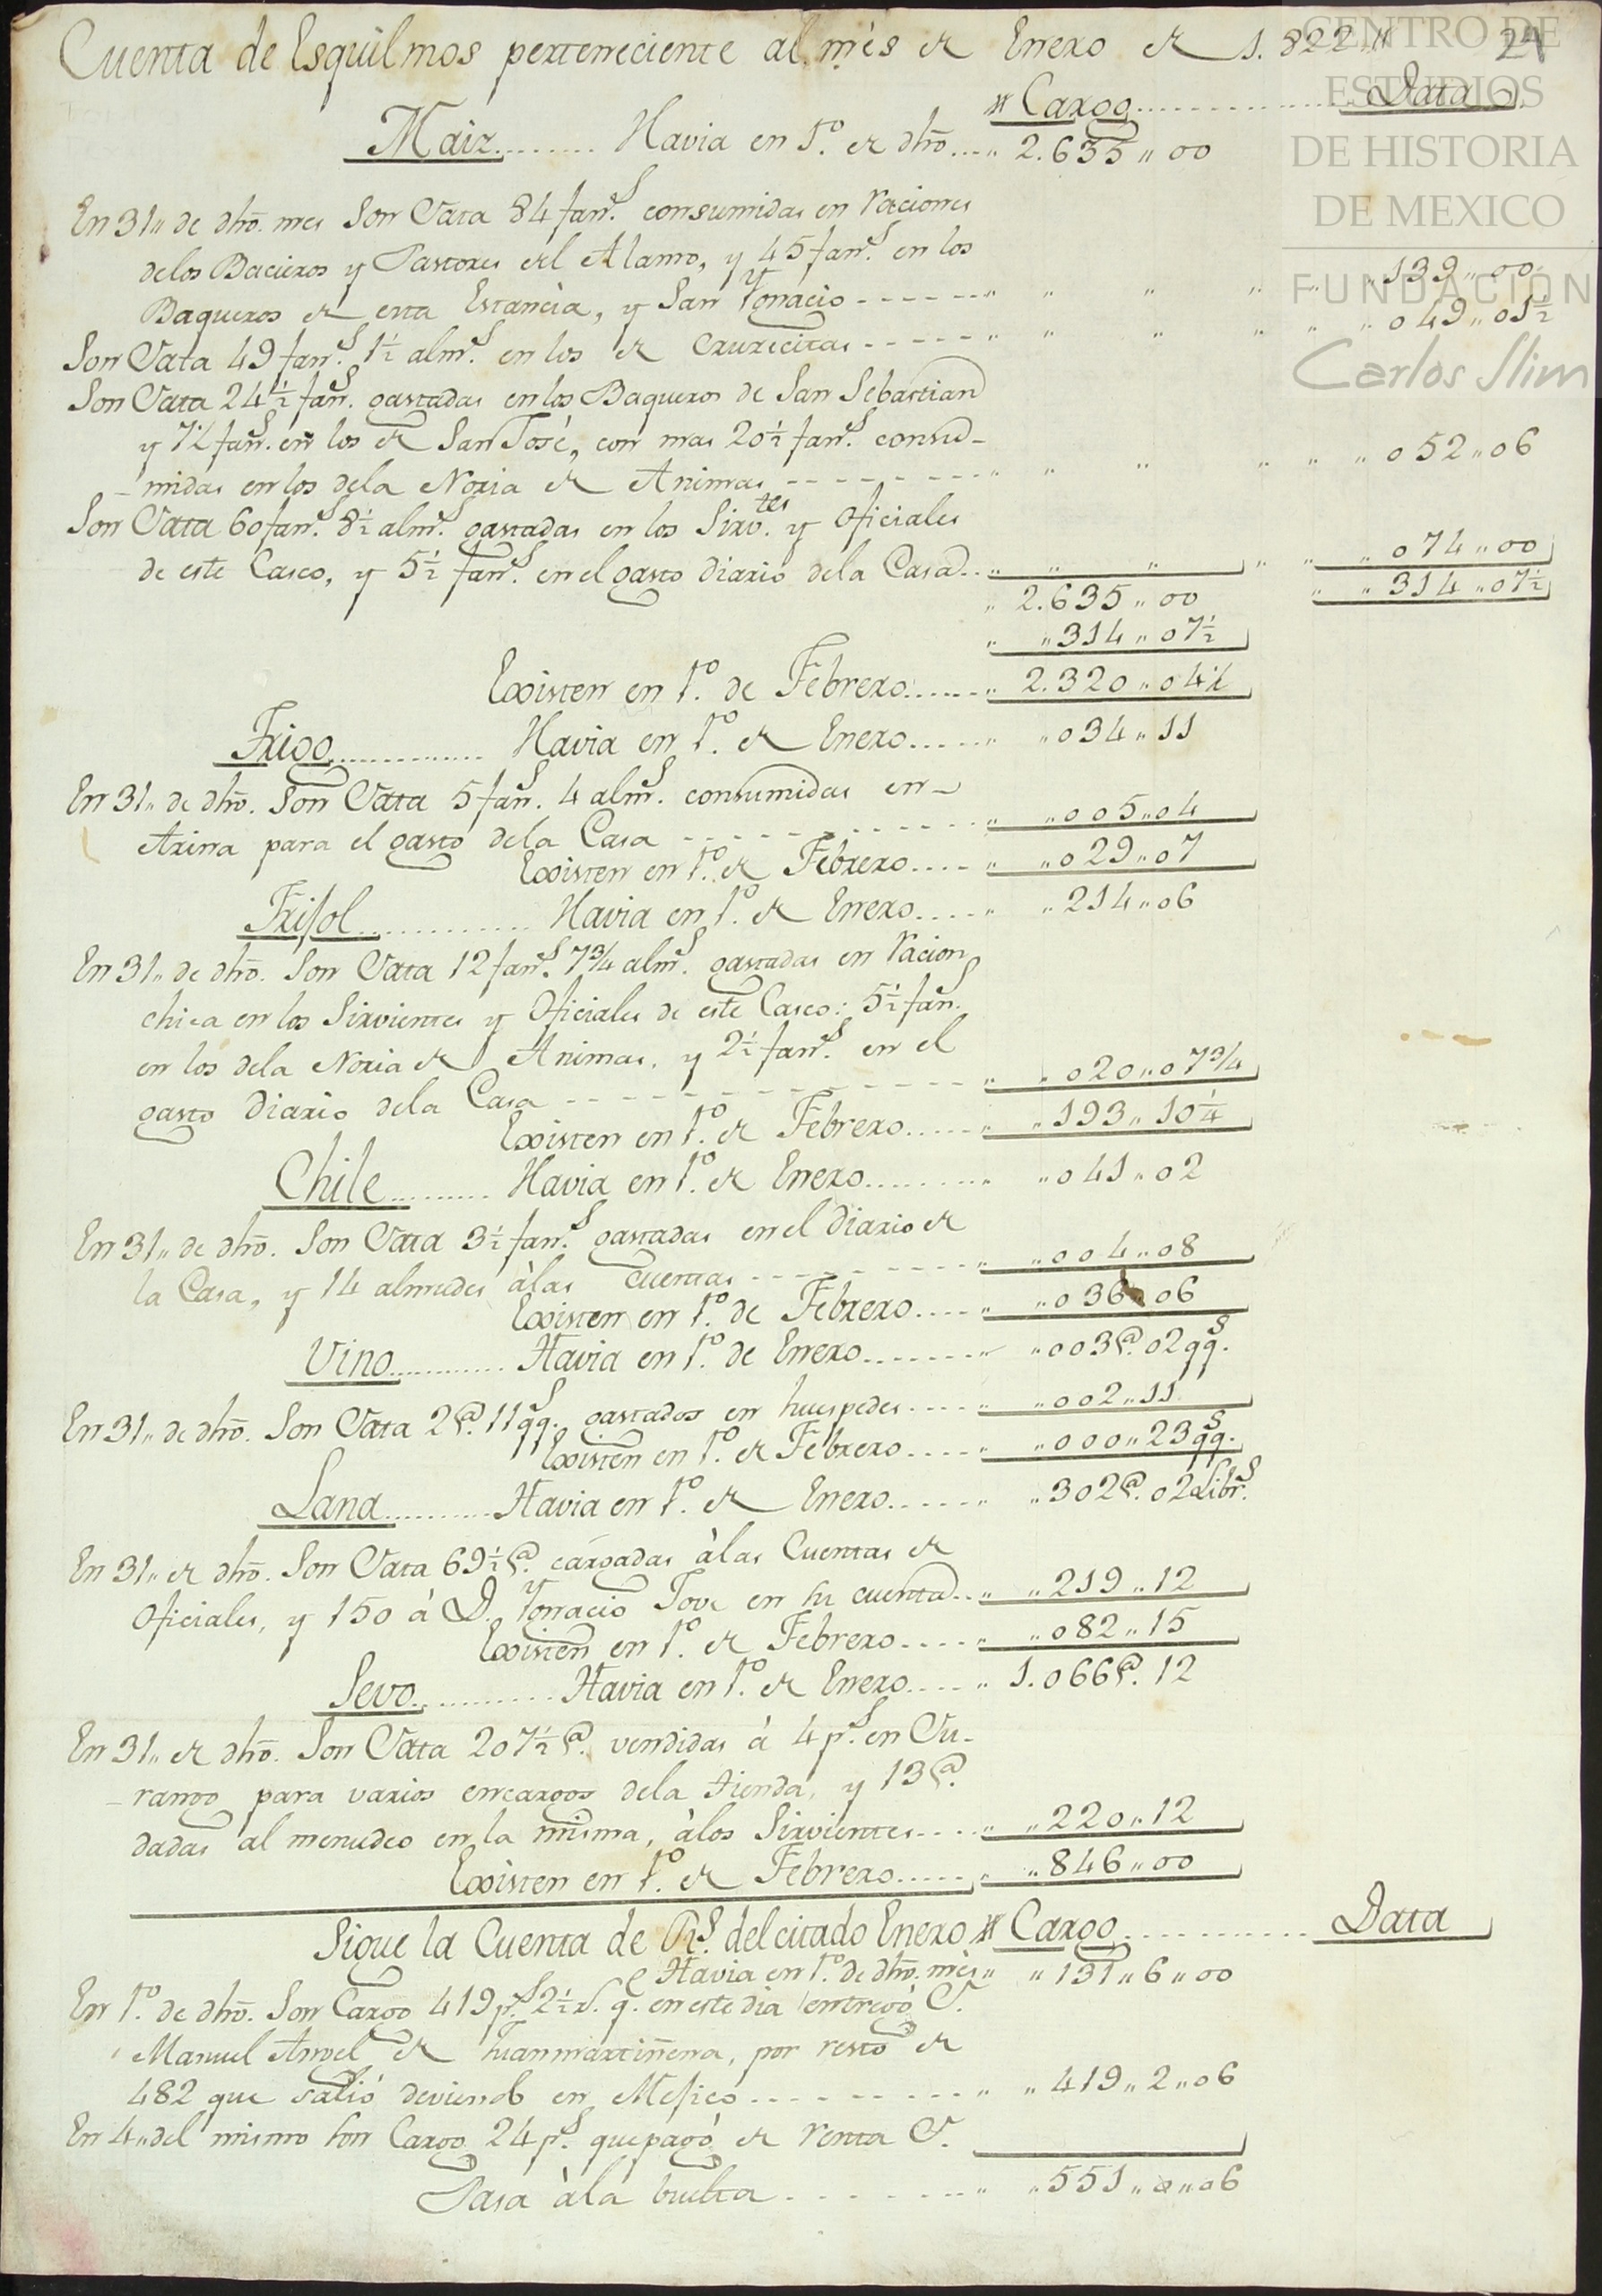 Cuenta de Esquilmos perteneciente al mes de Enero de 1.822 // 24
// Cargo .......... Data
Maiz ........ Havia en 1º. de dhõ .... 2.635 ,, 00
En 31,, de dhõ. mes Son Data 84 fanˢ. consumidas en raciones
delos Bacieros y Pastores del Alamo, y 45 fanˢ. en los
Baqueros de esta Estancia, y San Ygnacio ------ ,, ,, ,, ,, 139 ,, 00
Son Data 49 fanˢ. 1½ almˢ. en los de Crucecitas ----- ,, ,, ,, ,, 049 ,, 01½
Son Data 24½ fanˢ. gastadas en los Baqueros de San Sebastian
y 7½ fanˢ. en los de San José, con mas 20½ fanˢ. consu-
-midas en los dela Noria de Animas -------- ,, ,, ,, ,, 052 ,, 06
Son Data 60 fanˢ. 8½ almˢ. gastadas en los Sirvᵗᵉˢ. y Oficiales
de este Casco, y 5½ fanˢ. en el gasto diario dela Casa .. ,, ,, ,, ,, 074 ,, 00
,, 2.635 ,, 00 ,, ,, 314 ,, 07½
,, ,, 314 ,, 07½
Existen en 1º. de Febrero ...... 2.320 ,, 04½
Trigo ............. Havia en 1º. de Enero ..... ,, 034 ,, 11
En 31,, de dhõ. Son Data 5 fanˢ. 4 almˢ. consumidas en-
Arina para el gasto dela Casa ------------ ,, ,, 005 ,, 04
Existen en 1º. de Febrero .... ,, ,, 029 ,, 07
Frisol ............ Havia en 1º. de Enero .... ,, ,, 214 ,, 06
En 31,, de dhõ. Son Data 12 fanˢ. 7¾ almˢ. gastadas en racion
chica en los Sirvientes y Oficiales de este Casco: 5½ fanˢ.
en los dela Noria de Animas, y 2½ fanˢ. en el
gasto diario dela Casa ---------------- ,, ,, 020 ,, 07¾
Existen en 1º. de Febrero ..... ,, 193 ,, 10¼
Chile ......... Havia en 1º. de Enero ........ ,, ,, 041 ,, 02
En 31,, de dhõ. Son Data 3½ fanˢ. gastadas en el diario de
la Casa, y 14 almudes àlas cuentas ---------- ,, ,, 004 ,, 08
Existen en 1º. de Febrero .... ,, ,, 036 ,, 06
Vino ........... Havia en 1º. de Enero ....... ,, ,, 003@. 02qqˢ.
En 31,, de dhõ. Son Data 2@. 11qqˢ. gastados en huespedes .... ,, ,, 002 ,, 11
Existen en 1º. de Febrero .... ,, ,, 000 ,, 23qqˢ.
Lana .......... Havia en 1º. de Enero ...... ,, ,, 302@. 02 Librˢ.
En 31,, de dhõ. Son Data 69½@. cargadas àlas Cuentas de
Oficiales, y 150 à D. Ygnacio Tove en su cuenta .. ,, ,, 219 ,, 12
Existen en 1º. de Febrero .... ,, ,, 082 ,, 15
Sevo ............ Havia en 1º. de Enero .... ,, 1.066@. 12
En 31,, de dhõ. Son Data 207½@. vendidas à 4 pˢ. en Du-
-rango para varios encargos dela tienda, y 13@.
dadas al menudeo en la misma, àlos Sirvientes .... ,, ,, 220 ,, 12
Existen en 1º. de Febrero ..... ,, ,, 846 ,, 00
Sigue la Cuenta de Rˢ. del citado Enero // Cargo ............ Data
Havia en 1º. de dhõ. mès ,, ,, 131 ,, 6 ,, 00
En 1º. de dhõ. Son Cargo 419 pˢ. 2½ rˢ. qᵉ. en este dia entregò D.
Manuel Angel de Juanmartiñena, por resto de
482 que saliò deviendo en Mesico .......... ,, ,, 419 ,, 2 ,, 06
En 4,, del mismo son Cargo 24 pˢ. que pagò de renta D.
Pasa àla buelta ......... ,, ,, 551 ,, 0 ,, 06
CENTRO DE
ESTUDIOS
DE HISTORIA
DE MEXICO
FUNDACIÓN
Carlos Slim